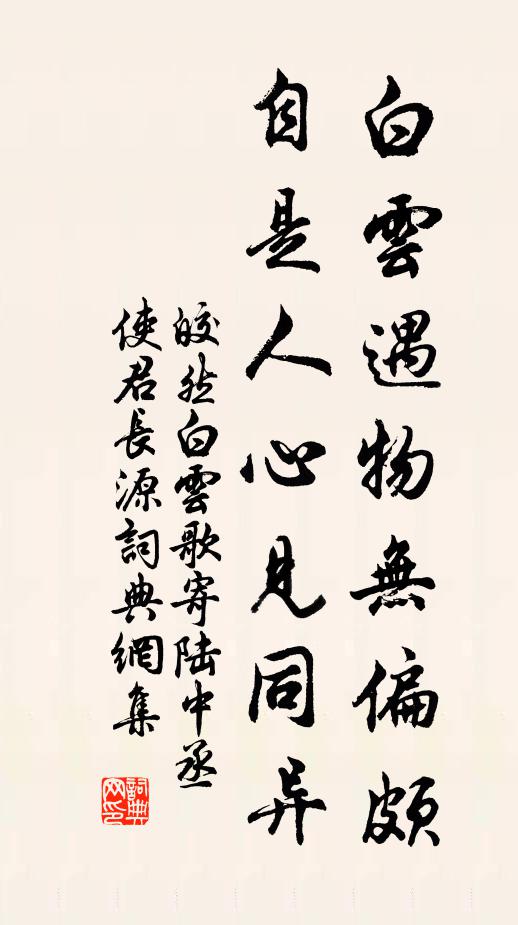 白雲遇物無偏頗
自是人心見同异
皎然白雲歌寄陆中丞
使君長源詞典網集
詞典
网印